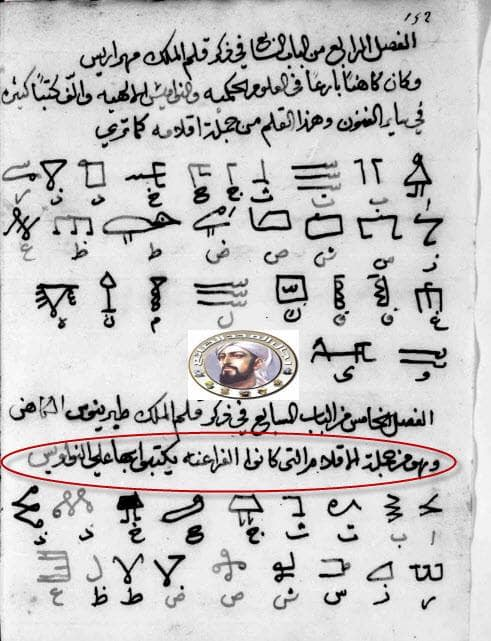 ١٥٢
الفصل الرابع من الباب السابع في ذكر قلم الملك مهراريس
وكان كاهناً بارعاً في العلوم الحكميه والنواميس الالهيه والف كتباً كثيره
في ساير الفنون وهذا القلم من جملة اقلامه كما تري
ا ب ت ث ج ح خ د ذ ر
ز س ش ص ض ط ظ ع
غ ف ق ك ل م ن ه
و ي
الفصل الخامس من الباب السابع في ذكر قلم الملك طبرينوس الكاهن
وهو من جملة الاقلام التي كانوا الفراعنه يكتبوا بها علي النواويس
ا ب ت ث ج ح خ د ذ
ر ز س ش ص ض ط ظ ع